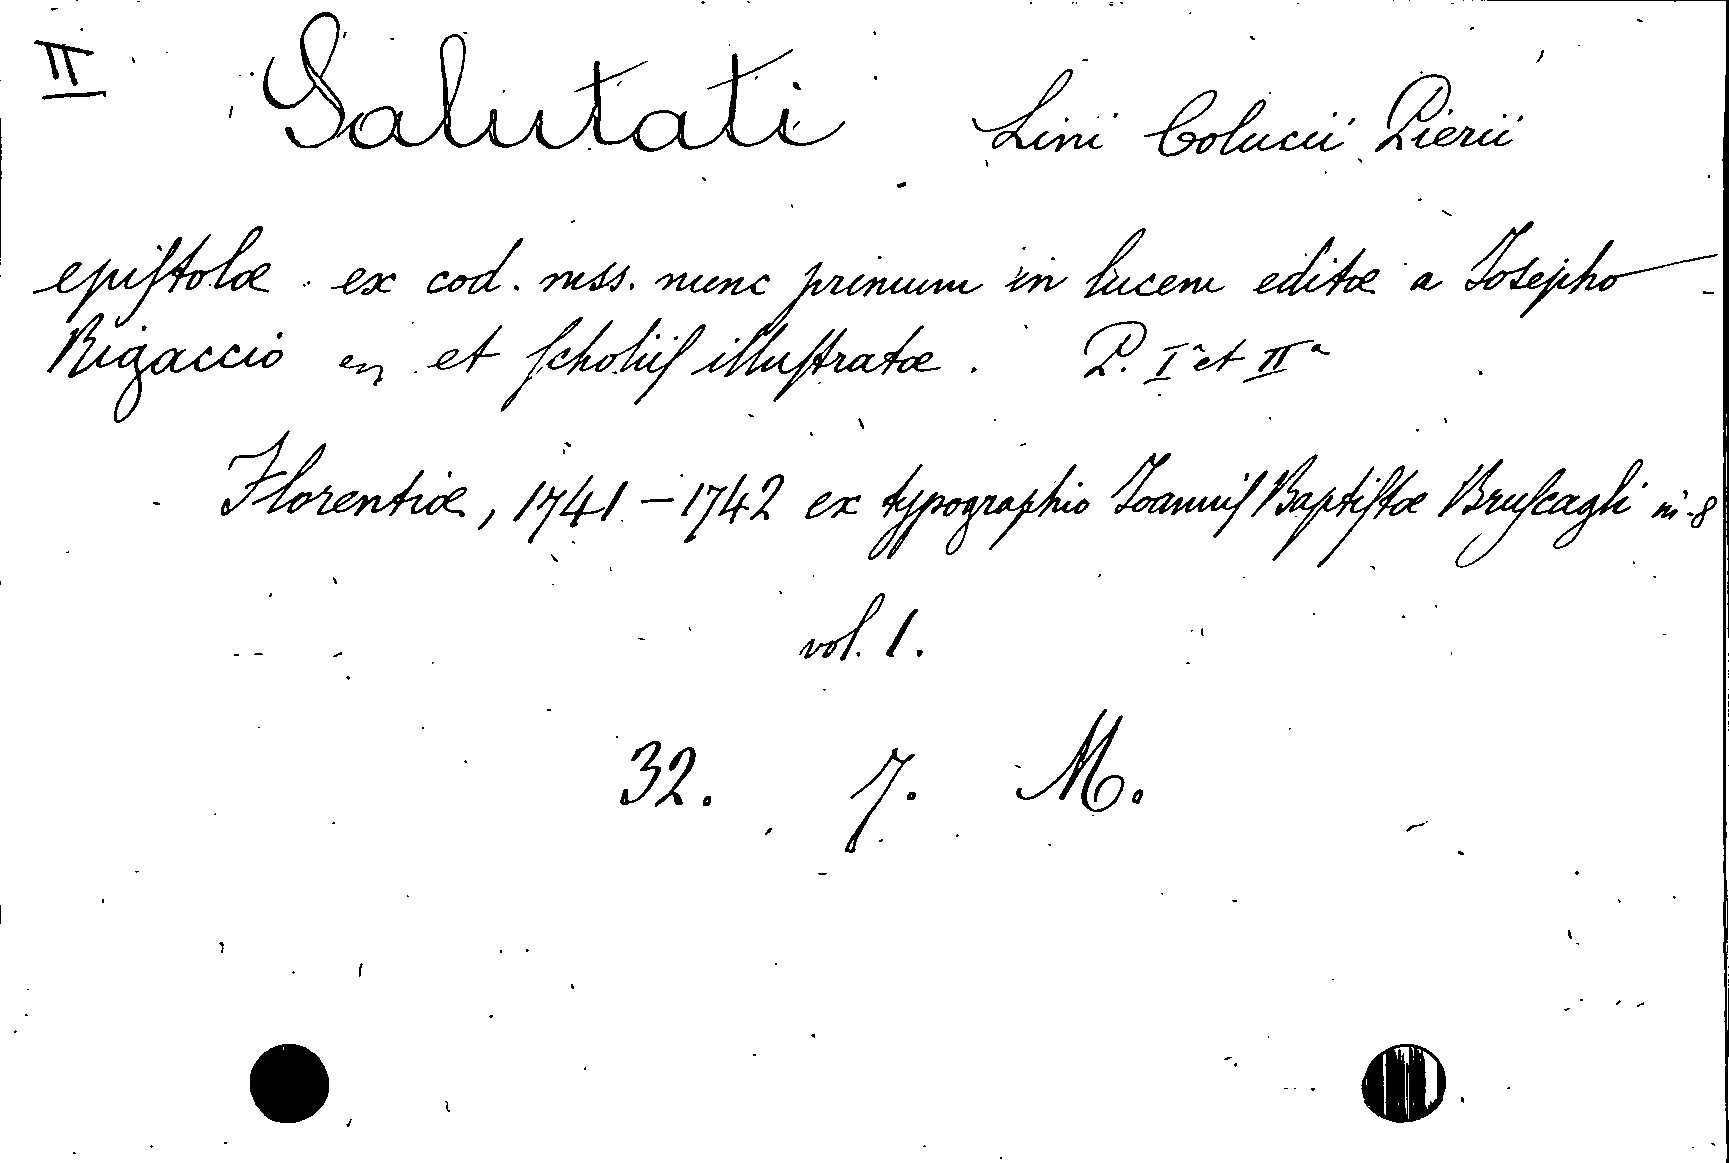 II Salutati Lini Colucii Pierii
epiſtolæ ex cod. mss. nunc primum in lucem editæ a Josepho
Rigaccio et ſcholiiſ illuſtratæ. P. Iª et IIª
Florentiæ, 1741-1742 ex typographio Joanniſ Baptiſtæ Bruſcagli in-8
vol. 1.
32. 7. M.